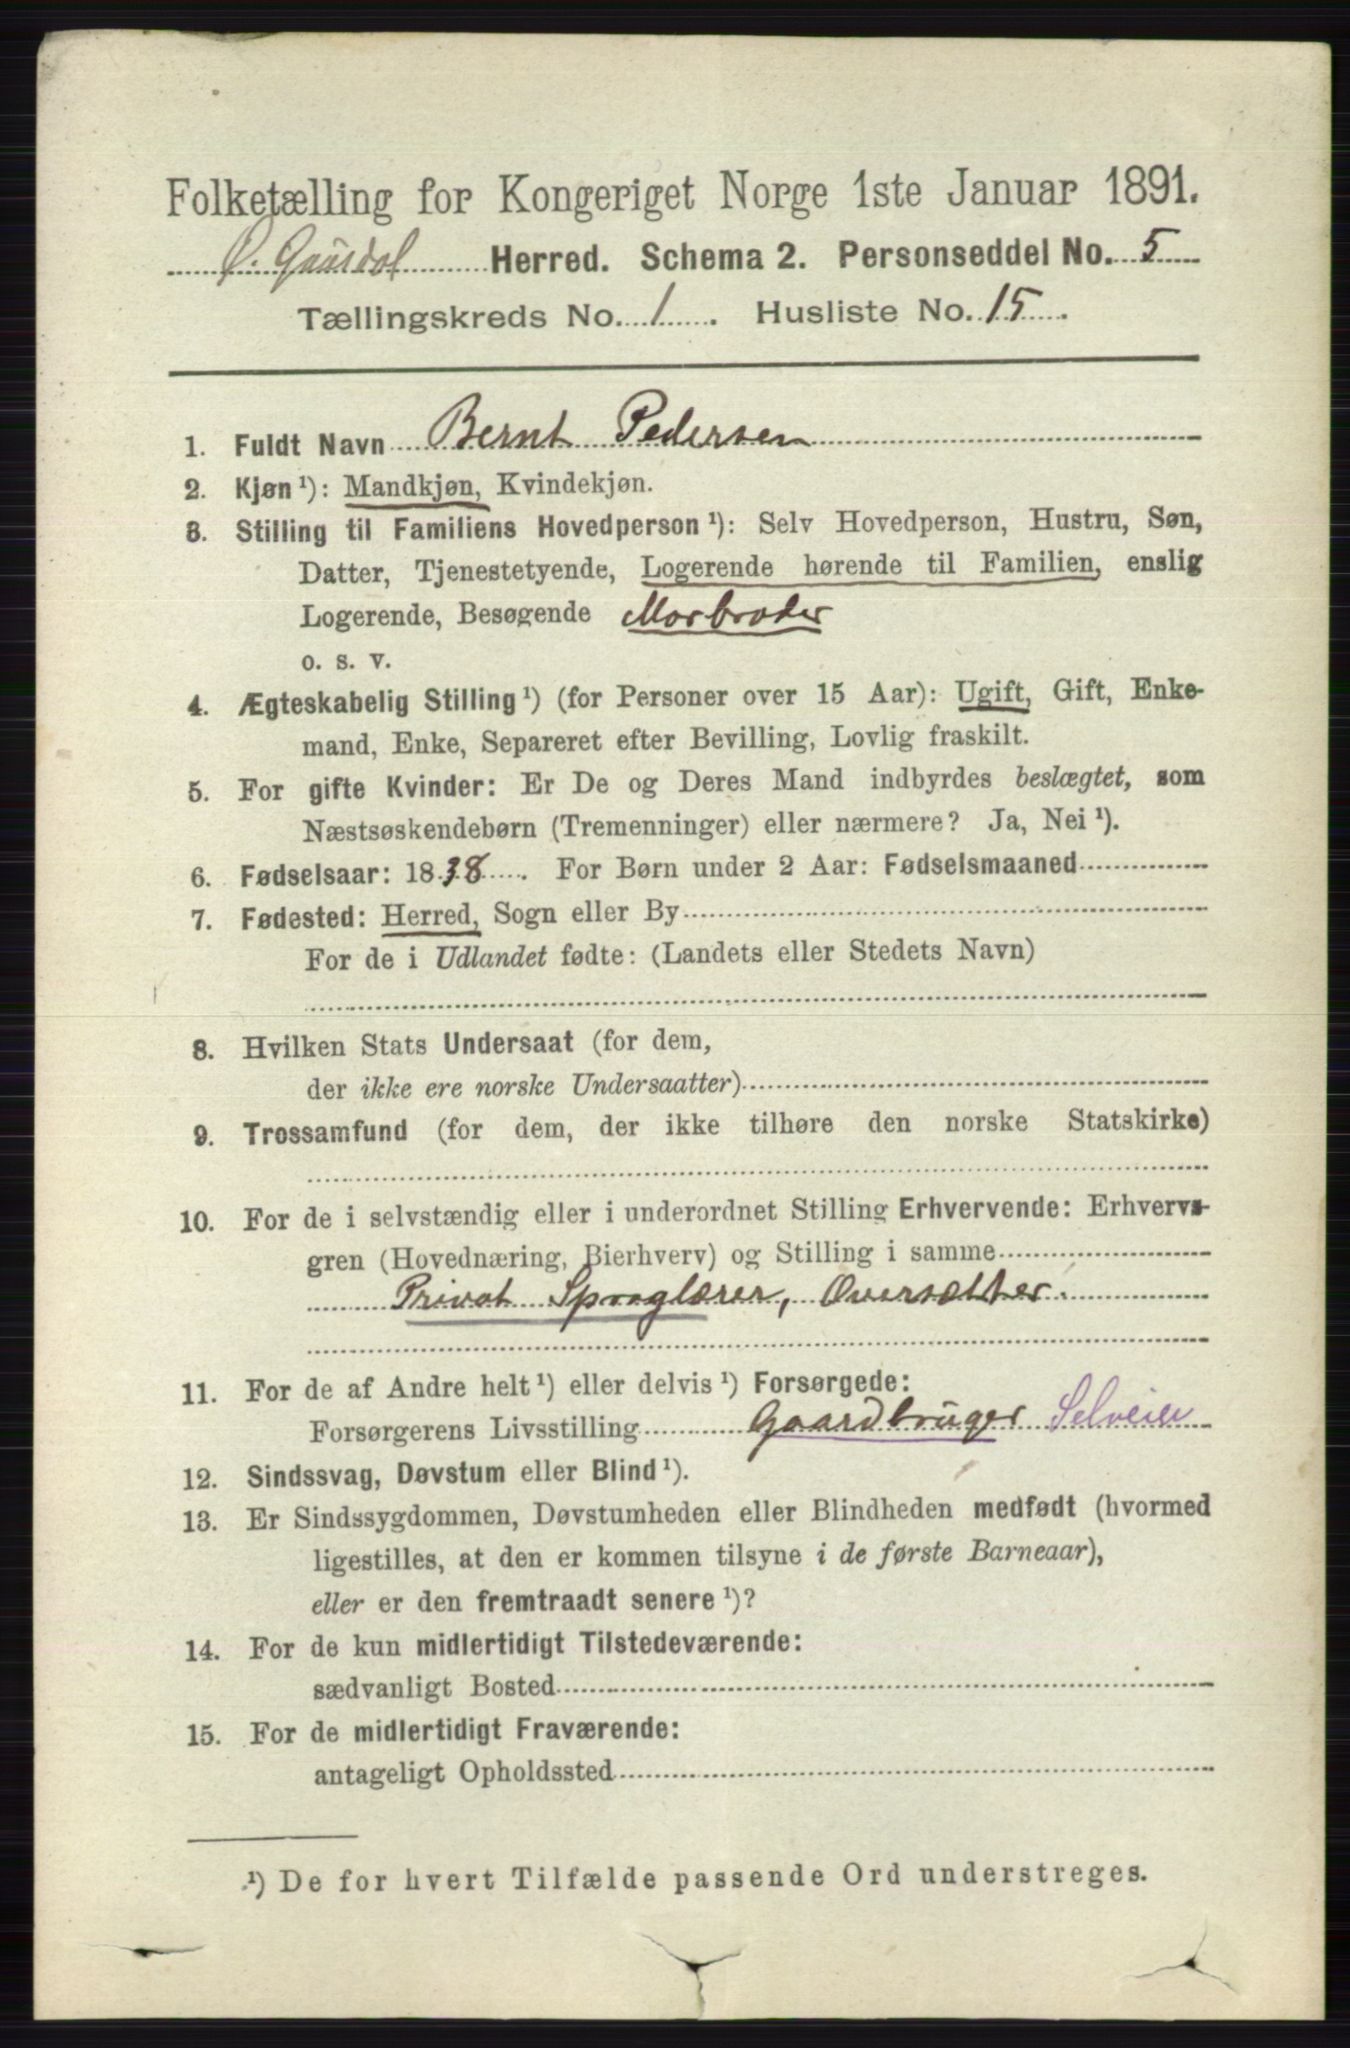 Folketælling for Kongeriget Norge 1ste Januar 1891.
Ø. Gausdal Herred. Schema 2. Personseddel No. 5
Tællingskreds No. 1. Husliste No. 15.
1. Fuldt Navn Bernt Pedersen
2. Kjøn ¹): Mandkjøn, Kvindekjøn.
3. Stilling til Familiens Hovedperson ¹): Selv Hovedperson, Hustru, Søn,
Datter, Tjenestetyende, Logerende hørende til Familien, enslig
Logerende, Besøgende Morbroder
o. s. v.
4. Ægteskabelig Stilling ¹) (for Personer over 15 Aar): Ugift, Gift, Enke-
mand, Enke, Separeret efter Bevilling, Lovlig fraskilt.
5. For gifte Kvinder: Er De og Deres Mand indbyrdes beslægtet, som
Næstsøskendebørn (Tremenninger) eller nærmere? Ja, Nei ¹).
6. Fødselsaar: 1838. For Børn under 2 Aar: Fødselsmaaned
7. Fødested: Herred, Sogn eller By
For de i Udlandet fødte: (Landets eller Stedets Navn)
8. Hvilken Stats Undersaat (for dem,
der ikke ere norske Undersaatter)
9. Trossamfund (for dem, der ikke tilhøre den norske Statskirke)
10. For de i selvstændig eller i underordnet Stilling Erhvervende: Erhvervs-
gren (Hovednæring, Bierhverv) og Stilling i samme
Privat Sproglærer, Oversætter.
11. For de af Andre helt ¹) eller delvis ¹) Forsørgede:
Forsørgerens Livsstilling Gaardbruger Selveier
12. Sindssvag, Døvstum eller Blind ¹).
13. Er Sindssygdommen, Døvstumheden eller Blindheden medfødt (hvormed
ligestilles, at den er kommen tilsyne i de første Barneaar),
eller er den fremtraadt senere ¹)?
14. For de kun midlertidigt Tilstedeværende:
sædvanligt Bosted
15. For de midlertidigt Fraværende:
antageligt Opholdssted
¹) De for hvert Tilfælde passende Ord understreges.